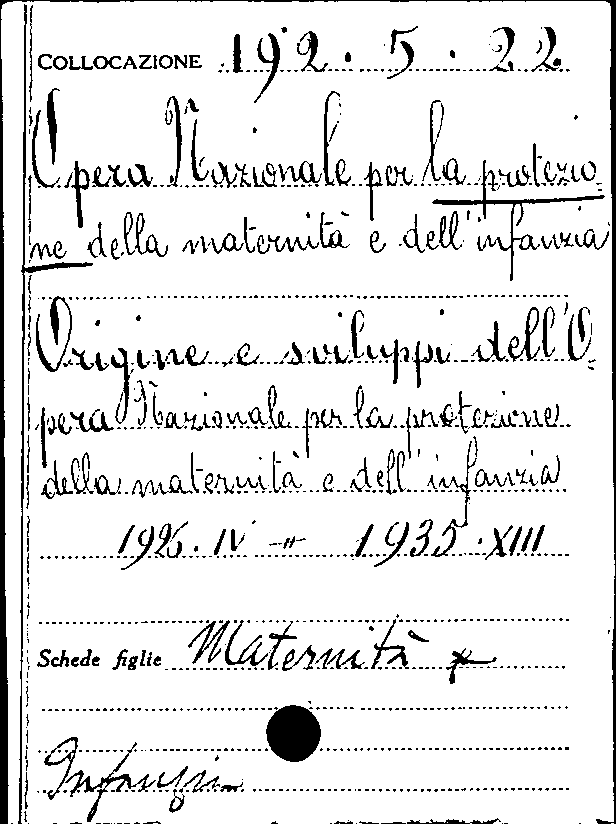 COLLOCAZIONE 192. 5. 22
Opera Nazionale per la protezio-
ne della maternità e dell'infanzia
Origine e sviluppi dell'O-
pera Nazionale per la protezione
della maternità e dell'infanzia
1926. IV -"- 1935. XIII
Schede figlie Maternità x
Infanzia